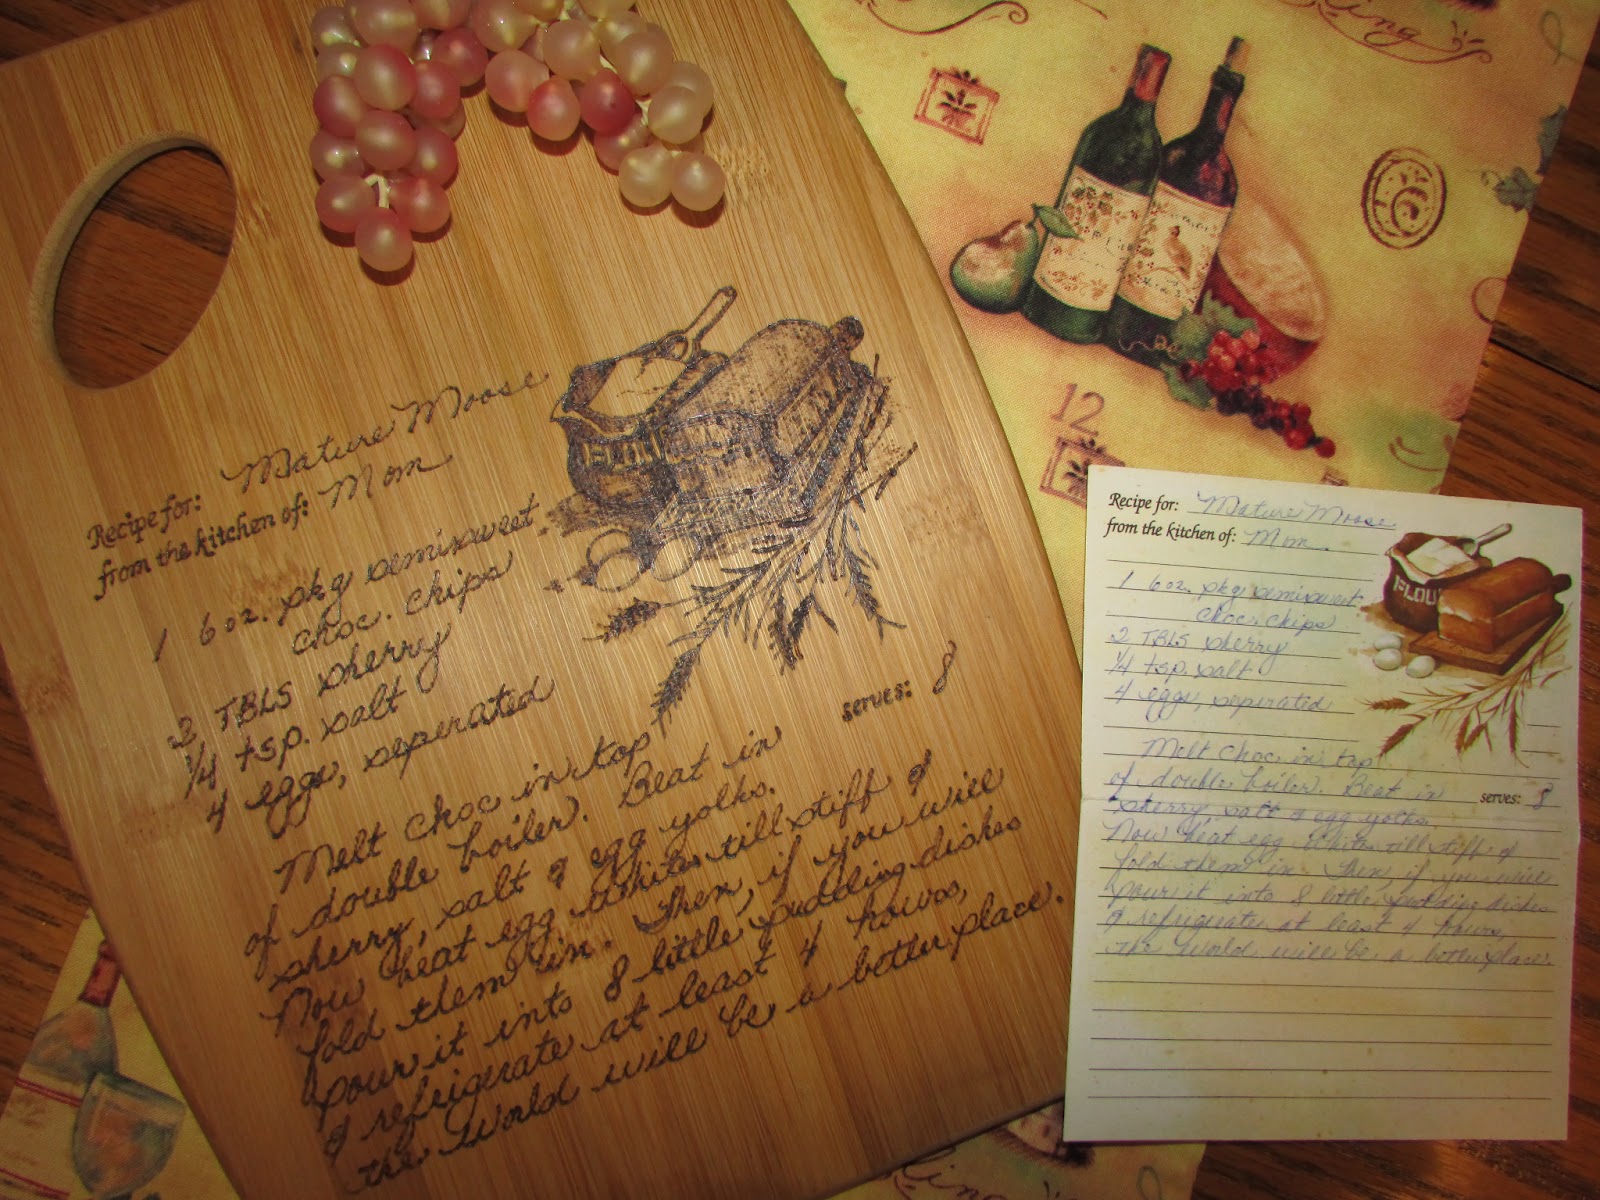 Recipe for: Mature Moose
from the kitchen of: Mom
1 6 oz. pkg semisweet
choc. chips
2 TBLS sherry
1/4 tsp. salt
4 eggs, seperated
serves: 8
Melt choc in top
of double boiler. Beat in
sherry, salt & egg yolks.
Now beat egg whites till stiff &
fold them in. Then, if you will
pour it into 8 little pudding dishes
& refrigerate at least 4 hours,
the world will be a better place.
FLOU
12
ing
Recipe for: Mature Moose
from the kitchen of: Mom
1 6 oz. pkg semisweet
choc. chips
2 TBLS sherry
1/4 tsp. salt
4 eggs, seperated
Melt choc in top
of double boiler. Beat in
serves: 8
sherry, salt & egg yolks.
Now beat egg whites till stiff &
fold them in. Then, if you will
pour it into 8 little pudding dishes
& refrigerate at least 4 hours,
the world will be a better place.
FLOU
ing